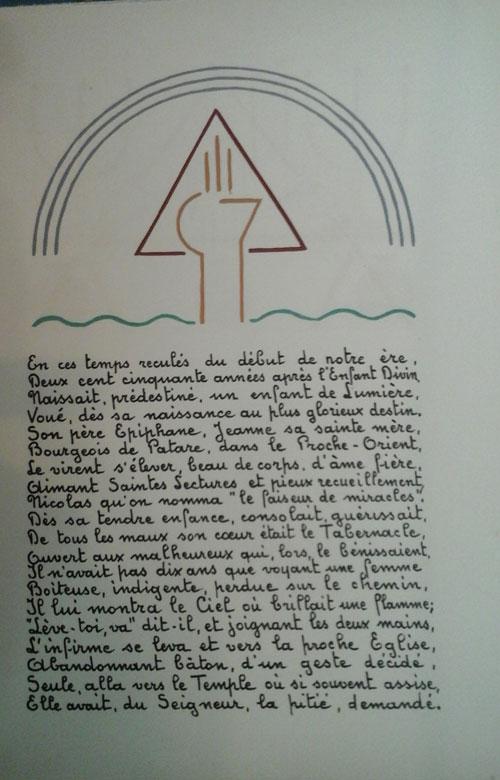 En ces temps reculés du début de notre ère,
Deux cent cinquante années après l'Enfant Divin
Naissait, prédestiné, un enfant de Lumière,
Voué, dès sa naissance au plus glorieux destin.
Son père Epiphane, Jeanne sa sainte mère,
Bourgeois de Patare, dans le Proche-Orient,
Le virent s'élever, beau de corps, d'âme fière,
Aimant Saintes Lectures et pieux recueillement,
Nicolas qu'on nomma "le faiseur de miracles",
Dès sa tendre enfance, consolait, guérissait,
De tous les maux son cœur était le Tabernacle,
Ouvert aux malheureux qui, lors, le bénissaient,
Il n'avait pas dix ans que voyant une femme
Boiteuse, indigente, perdue sur le chemin,
Il lui montra le Ciel où brillait une flamme;
"Lève-toi, va" dit-il, et joignant les deux mains,
L'infirme se leva et vers la proche Eglise,
Abandonnant bâton, d'un geste décidé,
Seule, alla vers le Temple où si souvent assise,
Elle avait, du Seigneur, la pitié, demandé.